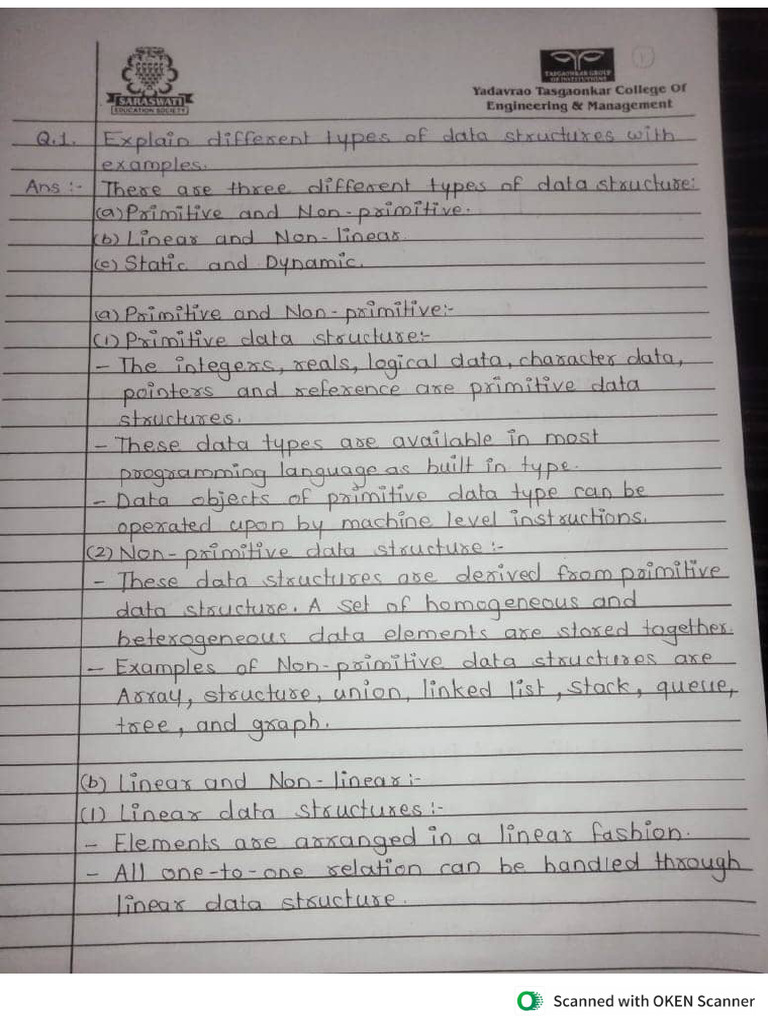 SARASWATI
EDUCATION SOCIETY
TASGAONKAR GROUP
OF INSTITUTIONS
1
Yadavrao Tasgaonkar College Of
Engineering & Management
Q.1. Explain different types of data structures with
examples.
Ans :- There are three different types of data structure:
(a) Primitive and Non-primitive.
(b) Linear and Non-linear.
(c) Static and Dynamic.
(a) Primitive and Non-primitive:-
(1) Primitive data structure:-
- The integers, reals, logical data, character data,
pointers and reference are primitive data
structures.
- These data types are available in most
programming language as built in type.
- Data objects of primitive data type can be
operated upon by machine level instructions.
(2) Non-primitive data structure :-
- These data structures are derived from primitive
data structure. A set of homogeneous and
heterogeneous data elements are stored together.
- Examples of Non-primitive data structures are
Array, structure, union, linked list, stack, queue,
tree, and graph.
(b) Linear and Non-linear:-
(1) Linear data structures:-
- Elements are arranged in a linear fashion.
- All one-to-one relation can be handled through
linear data structure.
Scanned with OKEN Scanner